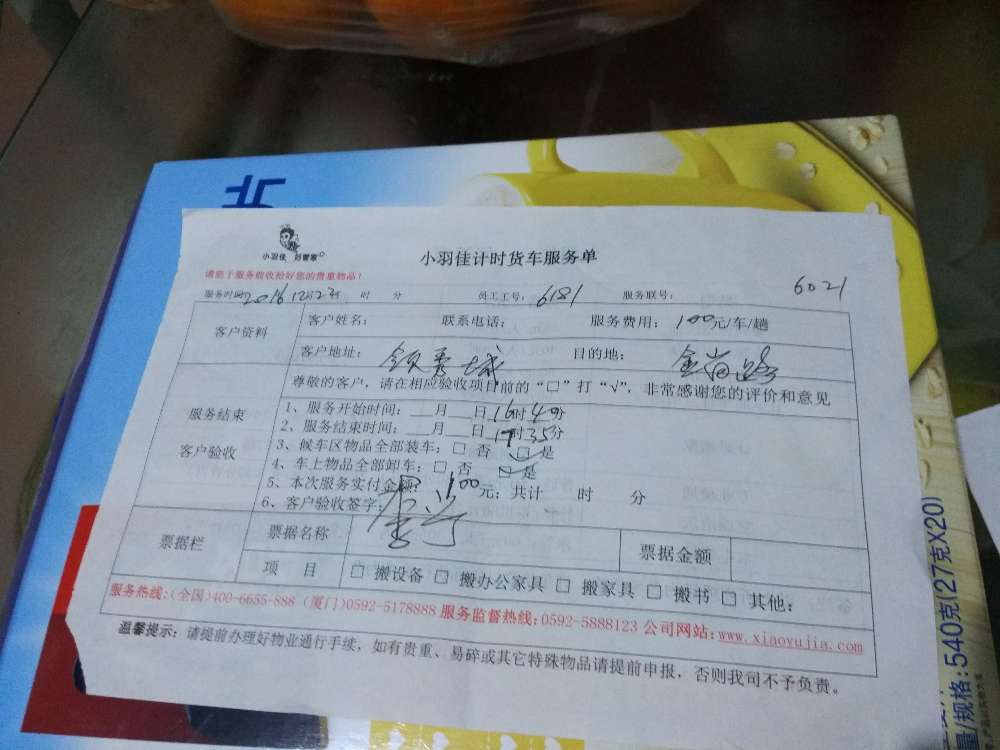 小羽佳 好管家
小羽佳计时货车服务单
请您于服务前收拾好您的贵重物品！
6021
服务时间：2016 12月2 时 分 员工工号：6181 服务联号：
客户资料
客户姓名： 联系电话： 服务费用：100元/车/趟
客户地址：领秀城 目的地：金尚路
服务结束
客户验收
尊敬的客户，请在相应验收项目前的“□”打“√”，非常感谢您的评价和意见
1、服务开始时间：__月__日16时40分
2、服务结束时间：__月__日17时35分
3、候车区物品全部装车：□ 否 □ 是
4、车上物品全部卸车：□ 否 □ 是
5、本次服务实付金额：100元；共计 时 分
6、客户验收签字：
票据栏
票据名称 票据金额
项 目 □ 搬设备 □ 搬办公家具 □ 搬家具 □ 搬书 □ 其他：
服务热线：(全国)400-6655-888 (厦门)0592-5178888 服务监督热线：0592-5888123 公司网站：www.xiaoyujia.com
温馨提示：请提前办理好物业通行手续，如有贵重、易碎或其它特殊物品请提前申报，否则我司不予负责。
量/规格：540克(27克X20)